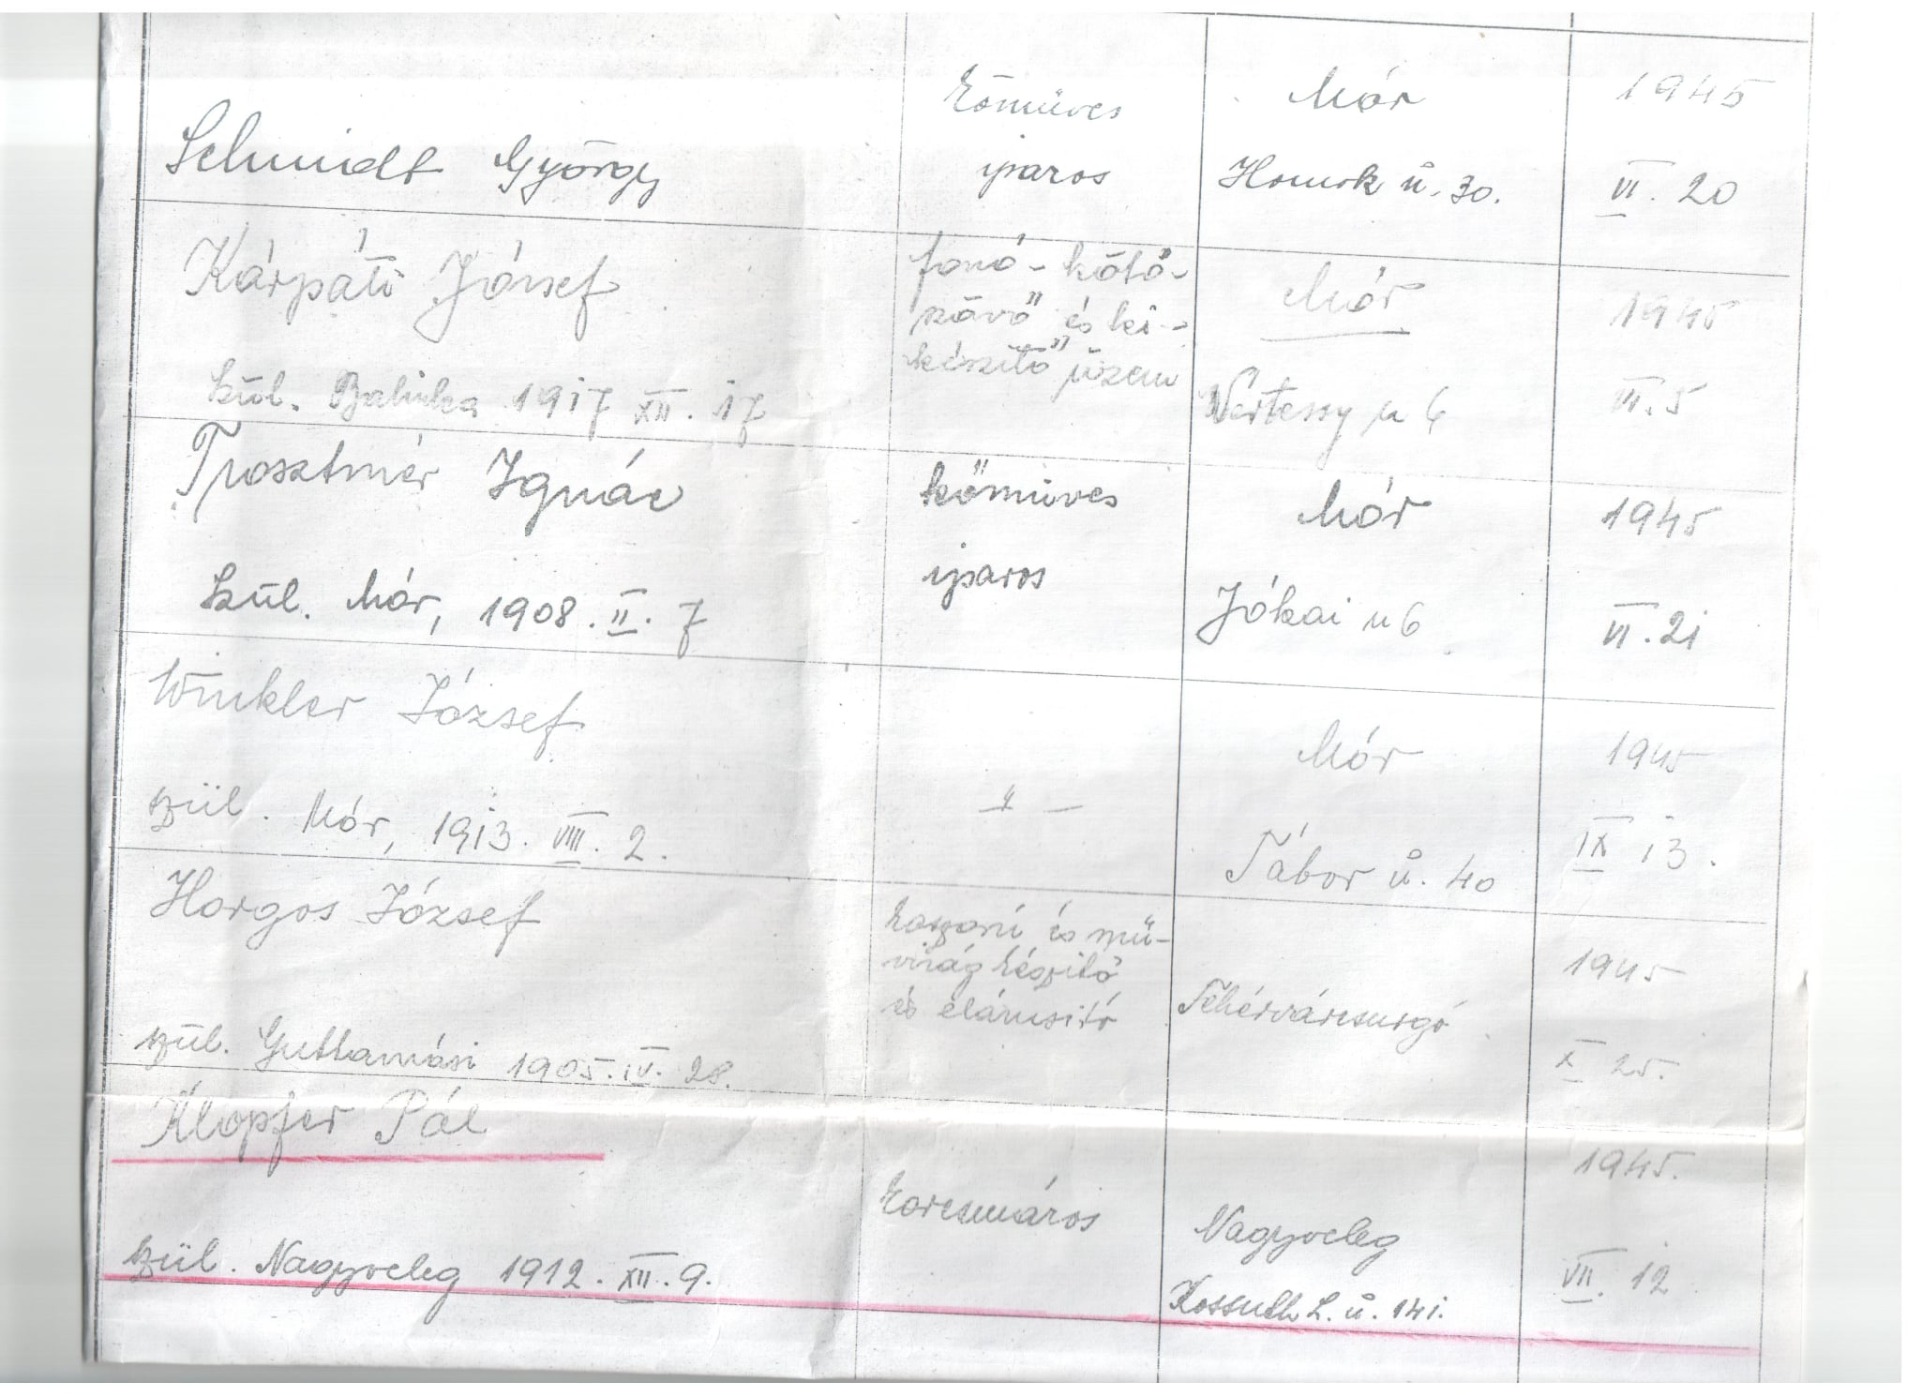 Schmidt György
kőműves
iparos
Mór
Homok u. 30.
1945
VI. 20
Kárpáti József
szül. Balinka 1917 XII. 17
fonó- kötő-
szövő és ki-
készítő üzem
Mór
Vértessy u 6
1945
VI. 5
Trosztmér Ignác
szül. Mór, 1908. II. 7
kőműves
iparos
Mór
Jókai u 6
1945
VI. 21
Winkler József
szül. Mór, 1913. VIII. 2.
— " —
Mór
Tábor u. 40
1945
IX 13.
Horgos József
szül. Guttamási 1905. IV. 28.
koszorú és mű-
virág készítő
és elárusító
Fehérvárcsurgó
1945
X 25.
Klopfer Pál
szül. Nagyveleg 1912. XII. 9.
korcsmáros
Nagyveleg
Kossuth L. u. 141.
1945.
VII. 12